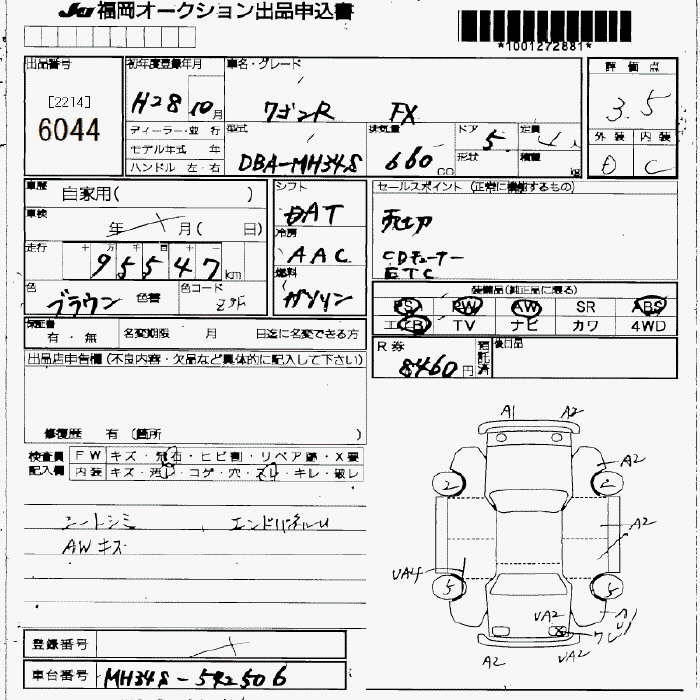 JU 福岡オークション出品申込書
*1001272881*
出品番号
[2214]
6044
初年度登録年月
H28 10月
車名・グレード
ワゴンR FX
評価点
3.5
外装 内装
D C
ディーラー・並行
モデル年式 年
ハンドル 左・右
型式
DBA-MH34S
排気量
660 CC
ドア
5
形状
定員
4人
積量
kg
車歴
自家用( )
車検
年 月( 日)
走行
十 万 千 百 十
95547 km
色
ブラウン
色替
色コード
ZSF
シフト
AT
冷房
AAC
燃料
ガソリン
セールスポイント (正常に機能するもの)
CDチューナー
ETC
装備品(純正品に限る)
PS PW AW SR ABS
エアB TV ナビ カワ 4WD
保証書
有・無
名変期限 月 日迄に名変できる方
R券
8460円
預託済
後日品
出品店申告欄(不良内容・欠品など具体的に記入して下さい)
修復歴 有 〔箇所 )
検査員記入欄
FW キズ・飛石・ヒビ割・リペア跡・X要
内装 キズ・汚レ・コゲ・穴・スレ・キレ・破レ
シートシミ エンドパネルU
AWキズ
A1 A2
A2
2 2
A2
UA4
5 5
UA2
A2 UA2
登録番号
車台番号
MH34S-542506